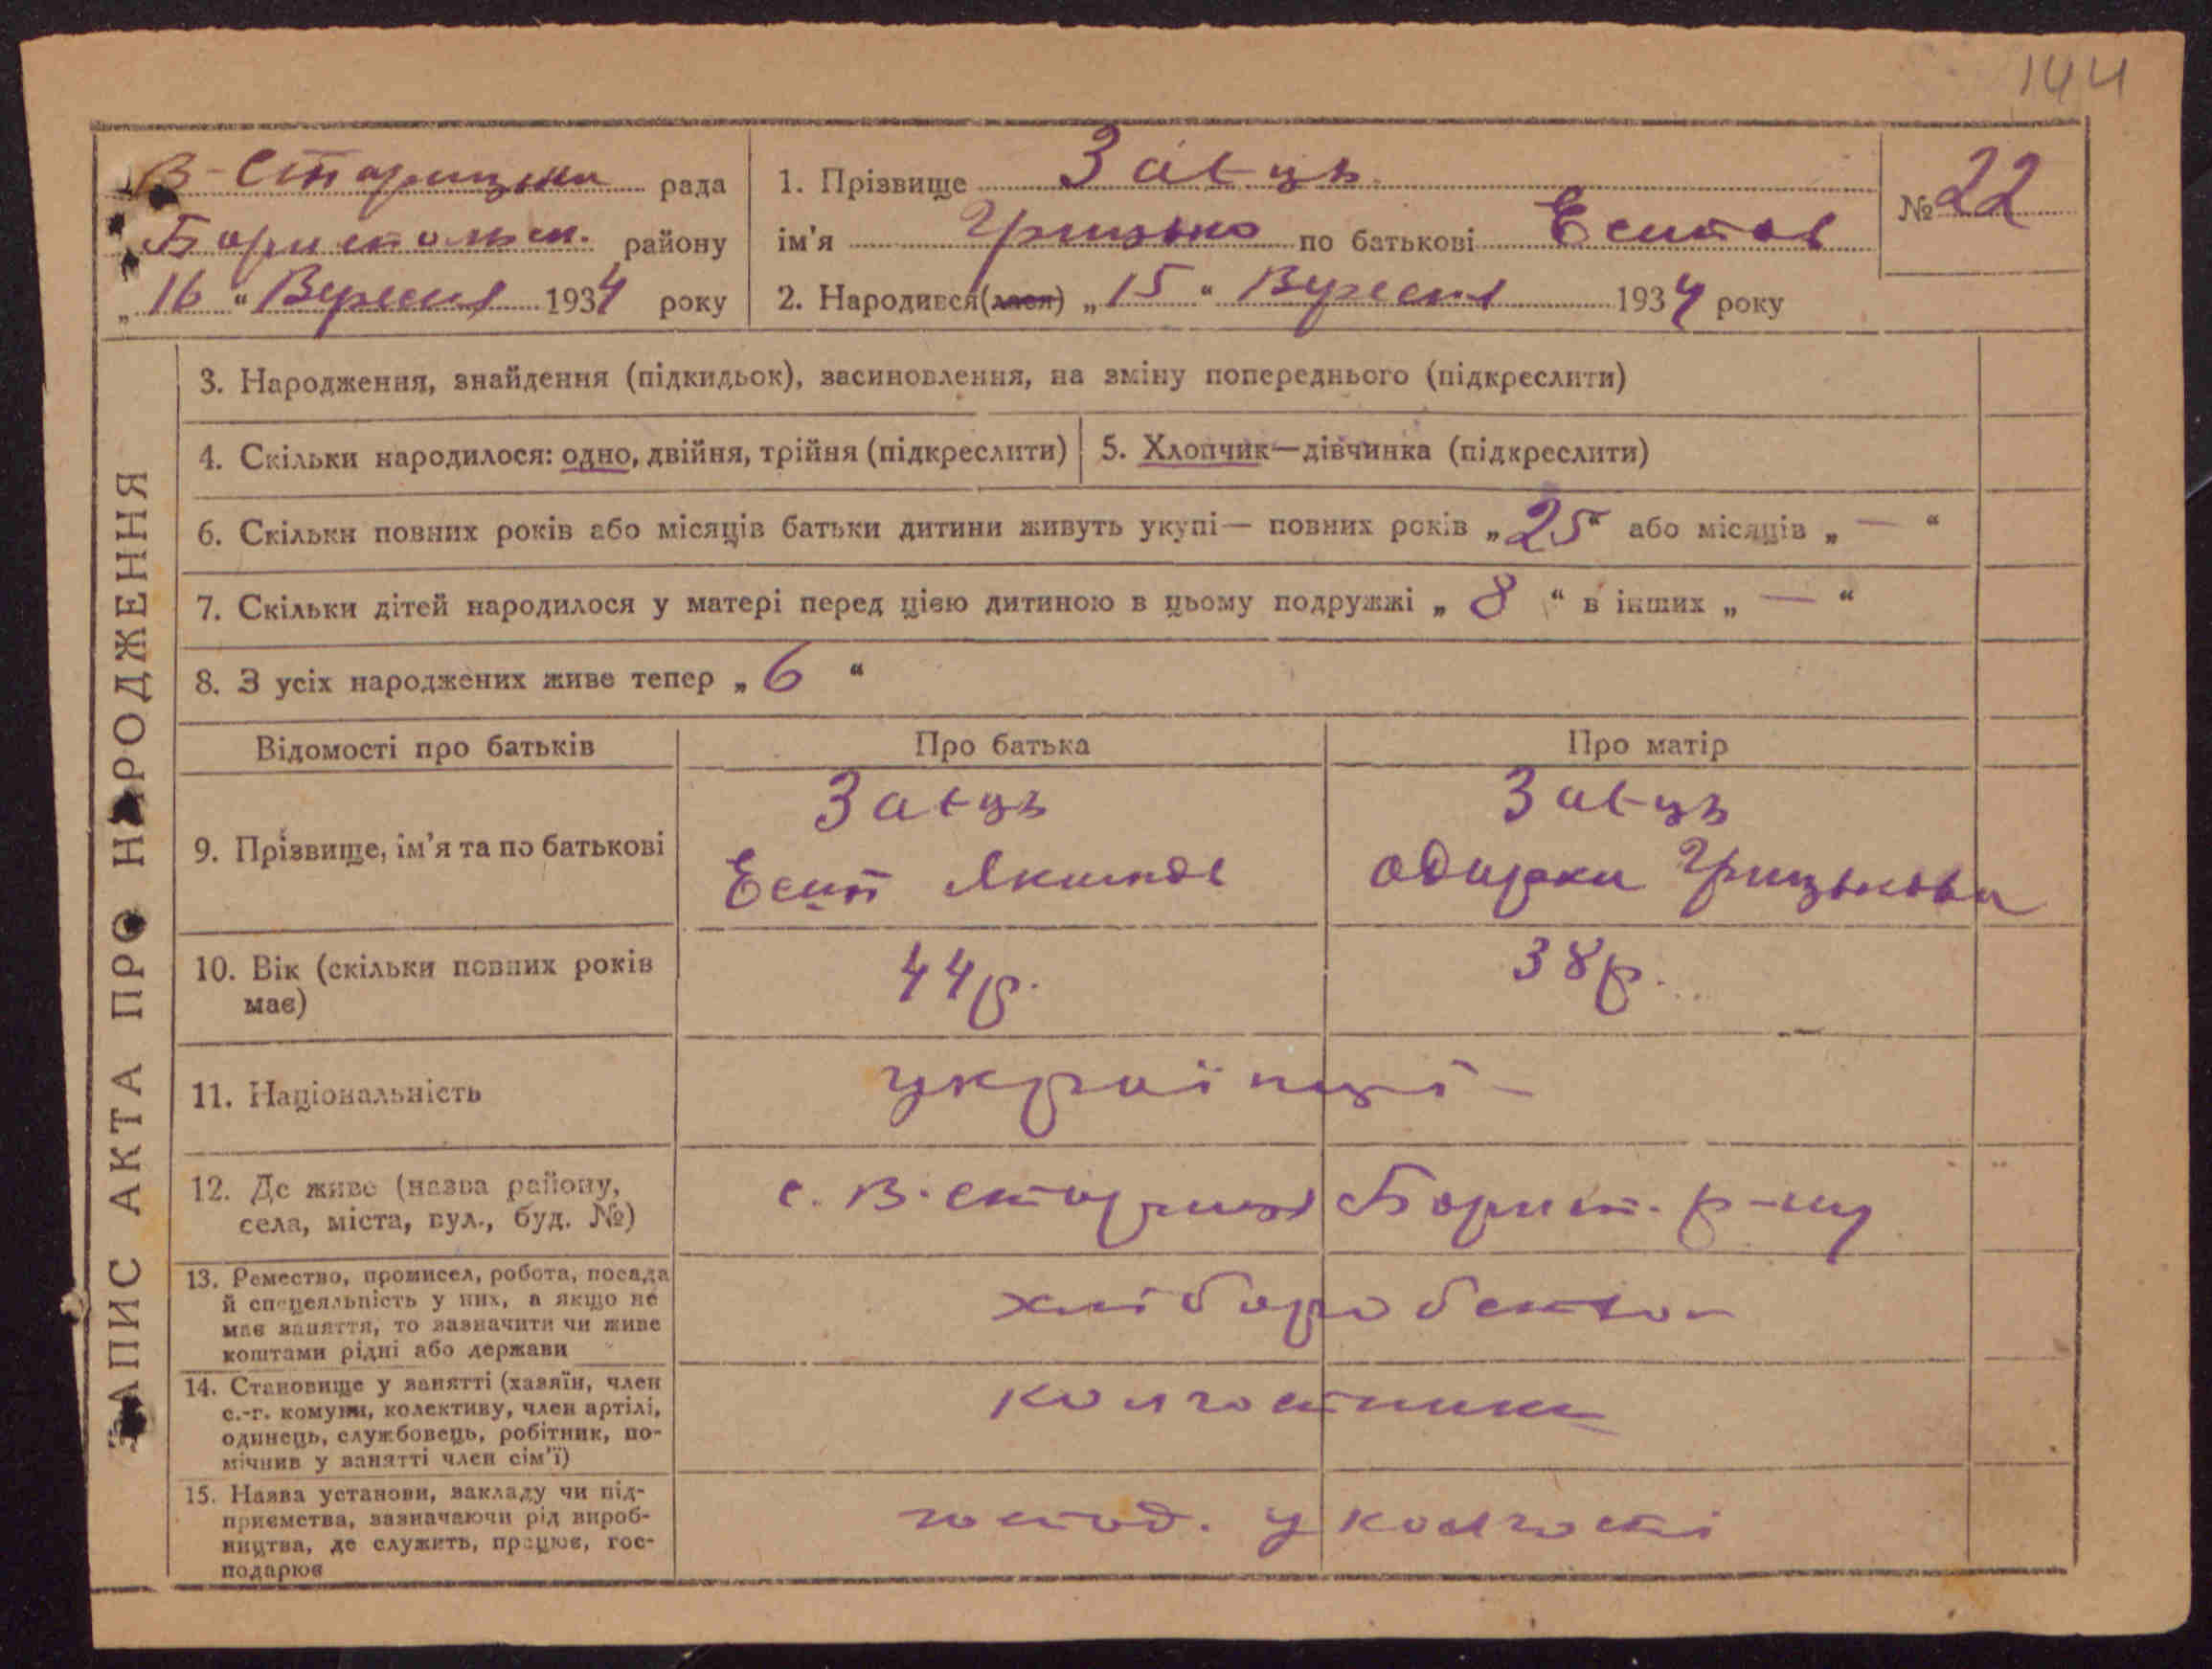 144
В-Старицька рада
Бориспольск. району
„16“ Вересня 1934 року
1. Прізвище Заєць
ім'я Грицько по батькові Есипов
2. Народився(лася) „15“ Вересня 1934 року
№ 22
ЗАПИС АКТА ПРО НАРОДЖЕННЯ
3. Народження, знайдення (підкидьок), засиновлення, на зміну попереднього (підкреслити)
4. Скільки народилося: одно, двійня, трійня (підкреслити)
5. Хлопчик—дівчинка (підкреслити)
6. Скільки повних років або місяців батьки дитини живуть укупі— повних років „25“ або місяців „—“
7. Скільки дітей народилося у матері перед цією дитиною в цьому подружжі „8“ в інших „—“
8. З усіх народжених живе тепер „6“
Відомості про батьків Про батька Про матір
9. Прізвище, ім'я та по батькові
Заєць
Есип Якимов
Заєць
Одарка Грицькова
10. Вік (скільки повних років
має)
44 р. 38 р.
11. Національність
українці
12. Де живе (назва району,
села, міста, вул., буд. №)
с. В. Стариця Борисп. р-ну
13. Ремество, промисел, робота, посада
й спецеяльність у них, а якщо не
має заняття, то зазначити чи живе
коштами рідні або держави
хліборобство
14. Становище у занятті (хазяїн, член
с.-г. комуни, колективу, член артілі,
одинець, службовець, робітник, по-
мічнив у занятті член сім'ї)
колгоспники
15. Назва установи, закладу чи під-
приємства, зазначаючи рід вироб-
ництва, де служить, працює, гос-
подарює
господ. у колгоспі